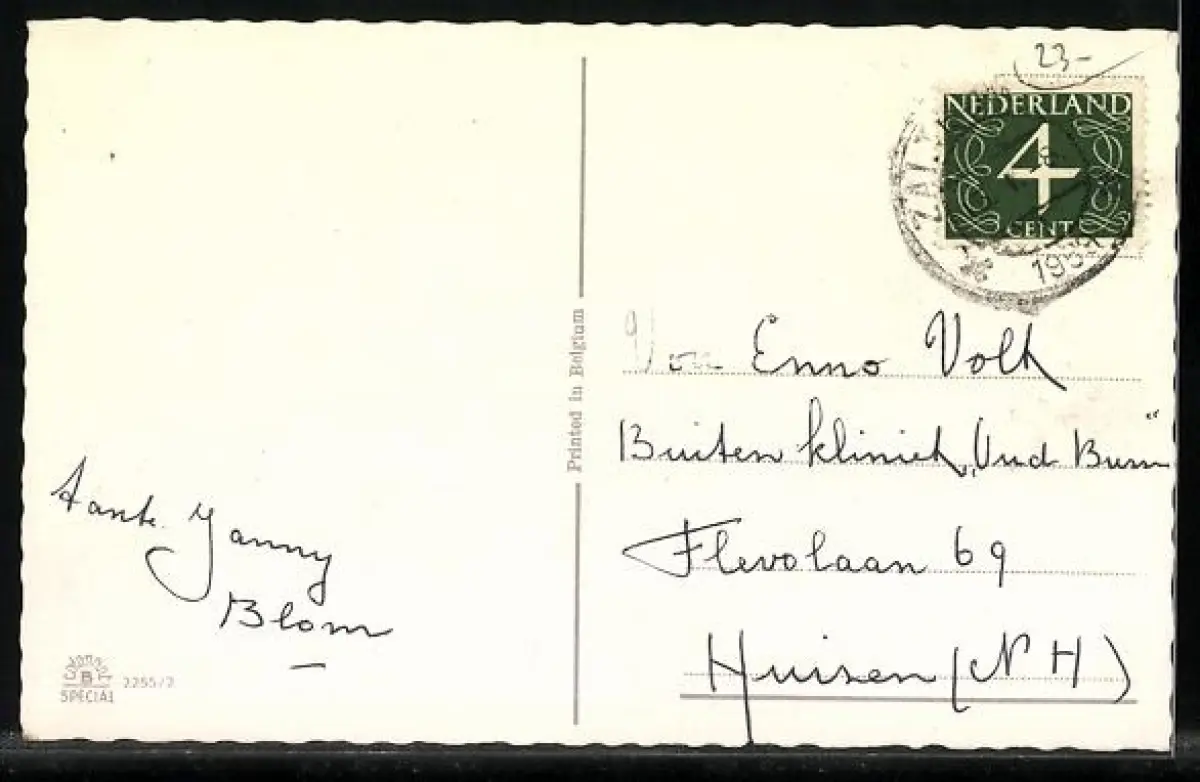 23-
NEDERLAND
4
CENT
Enno Volk
Buiten kliniek „Oud Bussum"
Flevolaan 69
Huisen (N H)
Printed in Belgium
tante Janny
Blom
B
SPECIAL 2255/2